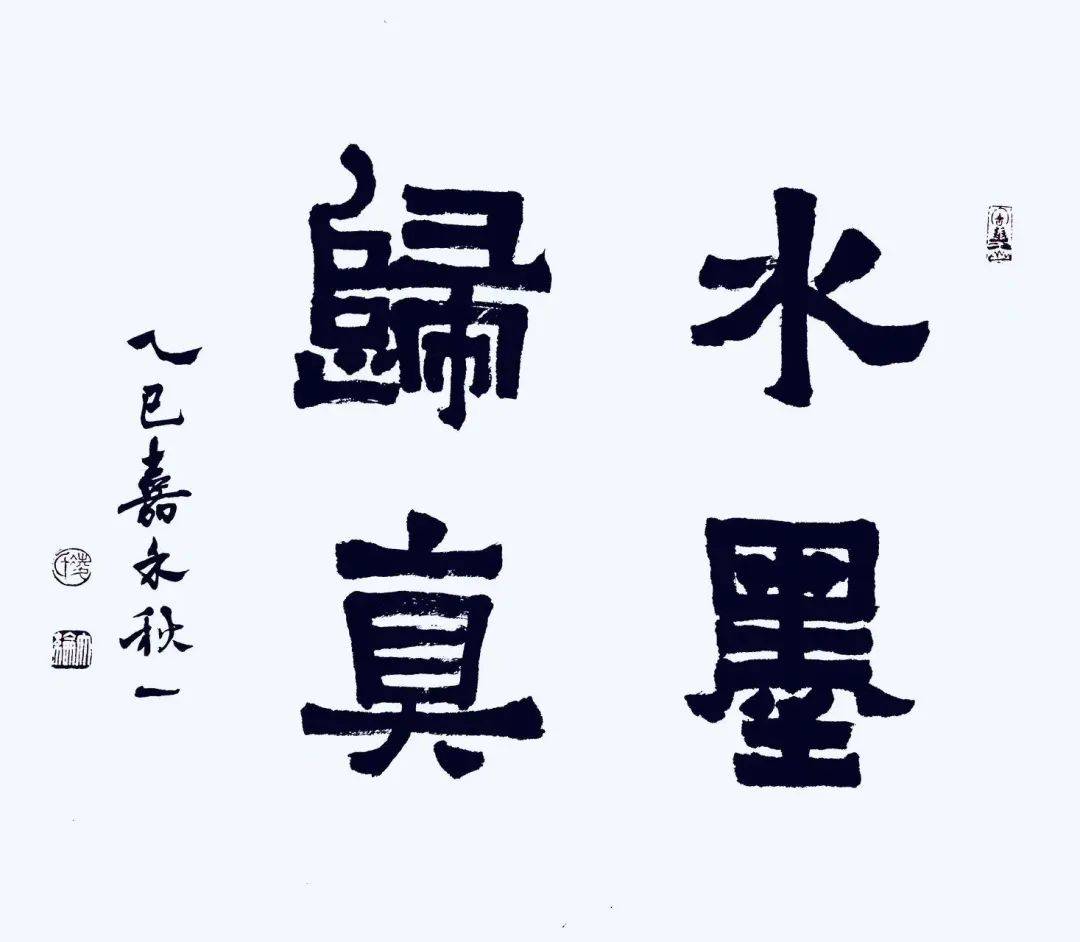 水墨
歸真
乙巳嘉禾秋一